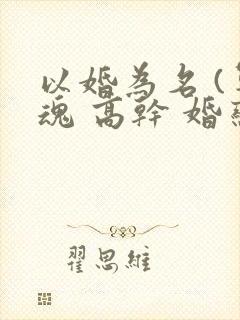 以婚為名(
魂 高幹 婚
翟思維